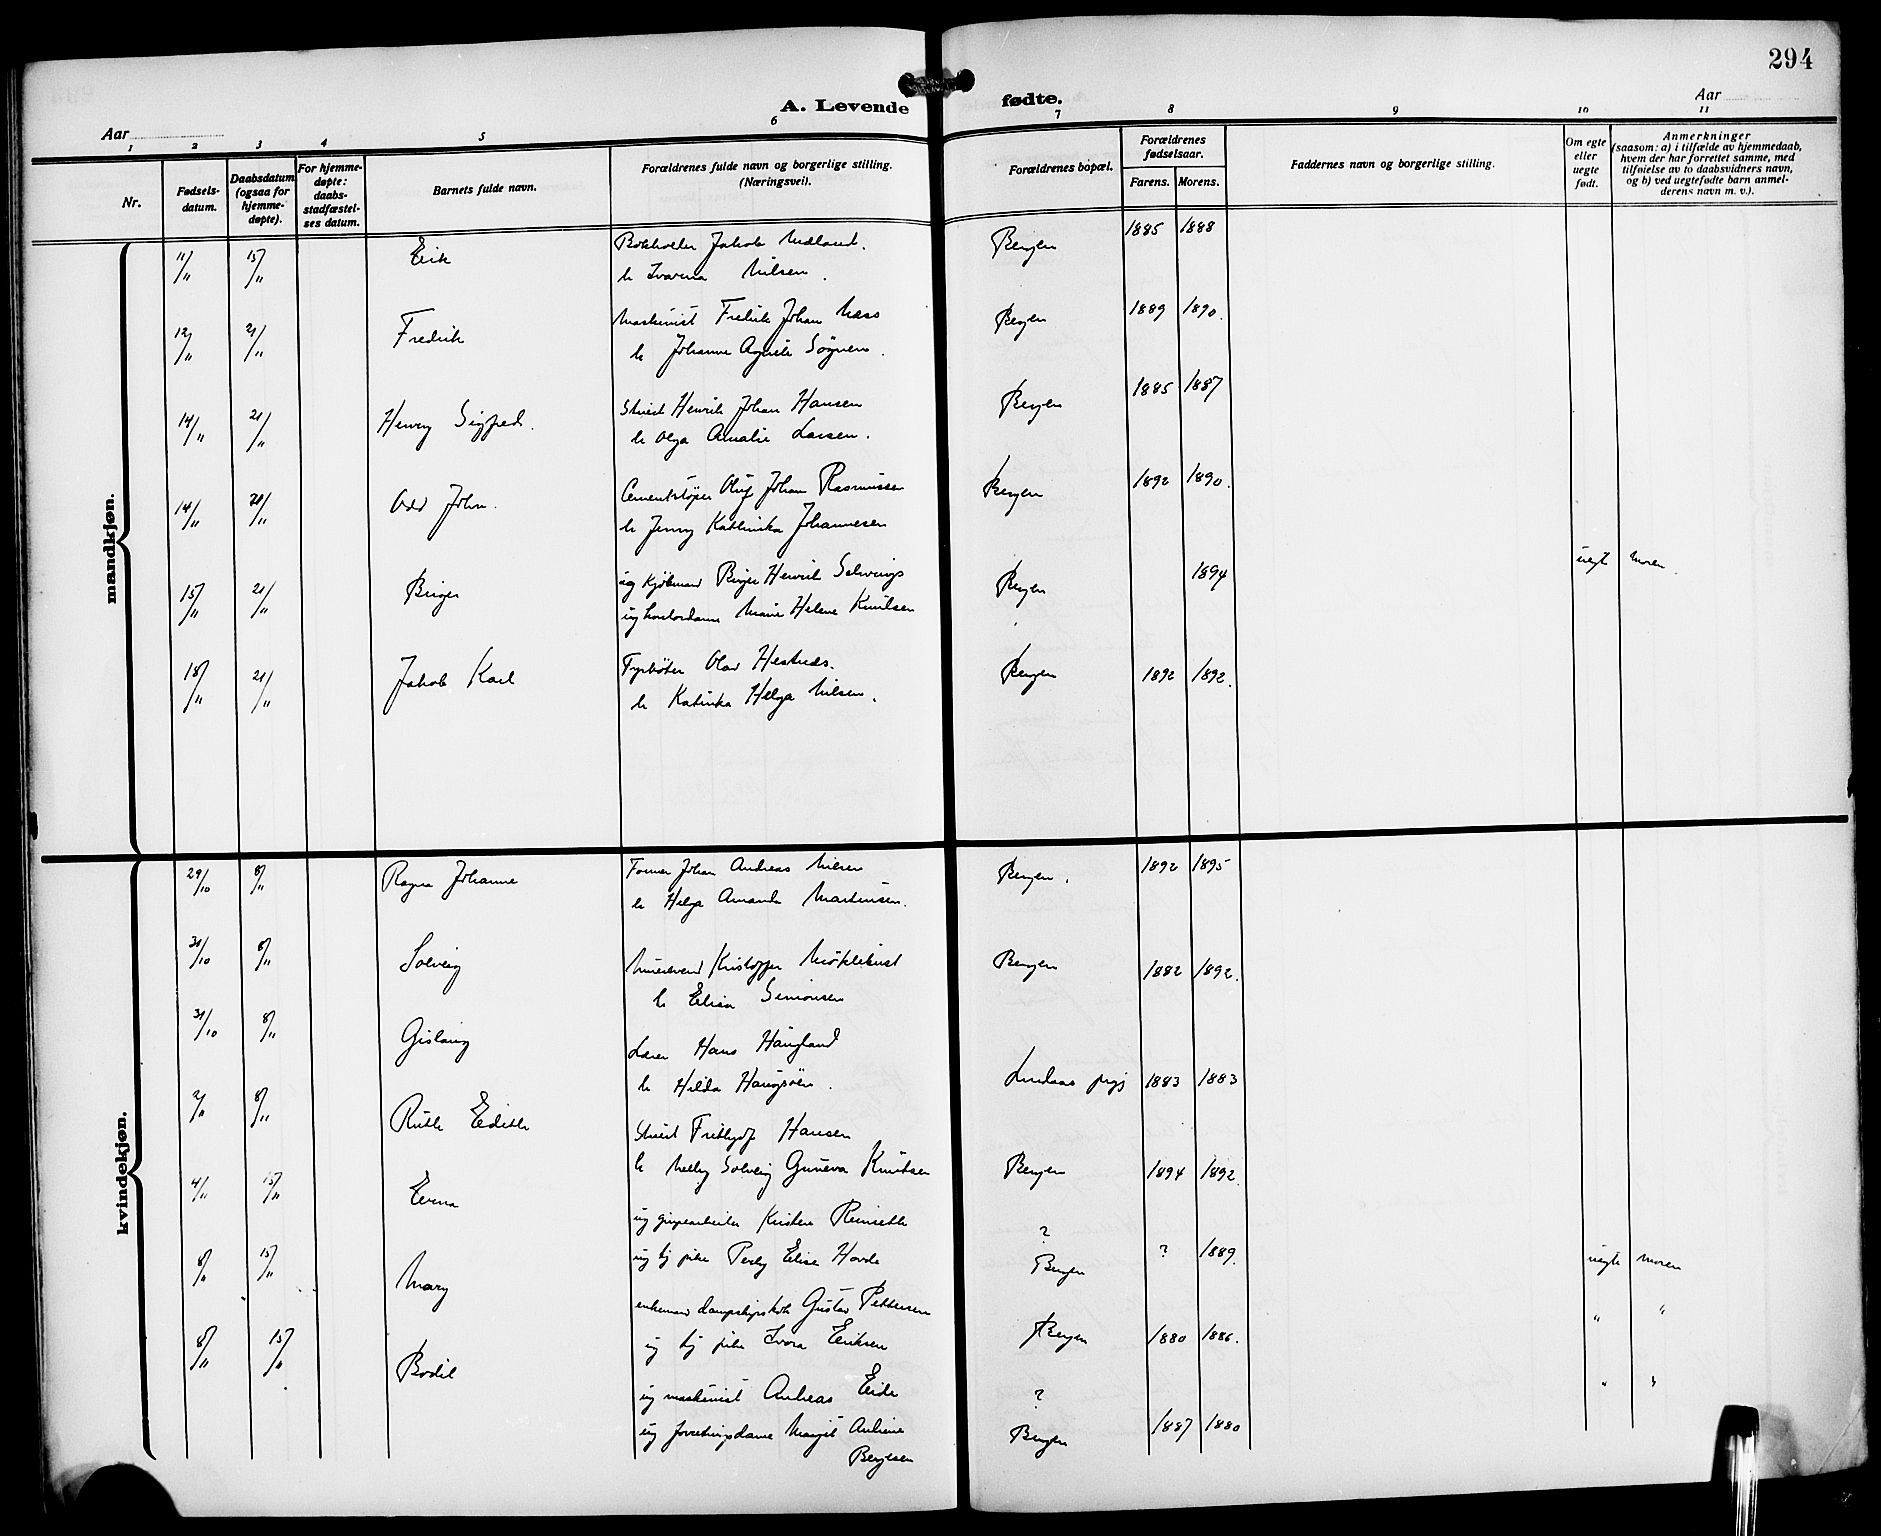 294
A. Levende fødte.
Aar
Aar
1 2 3 4 5 6 7 8 9 10 11
Nr.
Fødsels-
datum.
Daabsdatum
(ogsaa for
hjemme-
døpte).
For hjemme-
døpte:
daabs-
stadfæstel-
ses datum.
Barnets fulde navn.
Forældrenes fulde navn og borgerlige stilling.
(Næringsvei).
Forældrenes bopæl.
Forældrenes
fødselsaar.
Farens. Morens.
Faddernes navn og borgerlige stilling.
Om egte
eller
uegte
født.
Anmerkninger
(saasom: a) i tilfælde av hjemmedaab,
hvem der har forrettet samme, med
tilføielse av to daabsvidners navn,
og b) ved uegtefødte barn anmel-
derens navn m. v.).
mandkjøn.
11/11 15/11 Erik Bokholder Jakob Midland. Bergen 1885 1888
h Ivarna Nilsen.
12/11 21/11 Fredrik Maskinist Fredrik Johan Næss Bergen 1889 1890.
h Johanne Agnete Sognen.
14/11 21/11 Henry Sigfred. Stuert Henrik Johan Hansen Bergen 1885 1887
h Olga Amalie Larsen.
14/11 21/11 Odd John. Cementstøper Oluf Johan Rasmussen Bergen 1892 1890.
h Jenny Kathinka Johannesen
15/11 21/11 Birger ug kjøbmand Birger Henrik Selvings Bergen 1894 uegt Moren.
ug kontordame Marie Helene Knutsen
18/11 21/11 Jakob Karl Fyrbøter Olav Hestnes. Bergen 1892 1892.
h Katinka Helga Nilsen.
kvindekjøn.
29/10 8/11 Ragna Johanne Former Johan Andreas Nilsen Bergen. 1892 1895
h Helga Amanda Martinsen.
31/10 8/11 Solveig Murersvend Kristoffer Myklebust Bergen 1882 1892.
h Elisa Simonsen
31/10 8/11 Gislaug Lærer Hans Haugland
h Hilda Haugsøen. Lindaas prgj 1883 1883
2/11 8/11 Ruth Edith Stuert Frithjof Hansen
h Nelly Solveig Guneva Knutsen Bergen 1894 1892.
4/11 15/11 Erna ug gruvearbeider Kristen Reinseth ?
ug tj pike Perly Elise Hovde Bergen ? 1889. uegte Moren
8/11 15/11 Mary enkemand dampskipskok Gustav Pettersen
ug tj pike Ivara Eriksen Bergen 1880 1886. " "
8/11 15/11 Bodil ug maskinist Andreas Eide ? " "
ug forretningsdame Margit Andrine Bergen 1887 1880
Bergesen